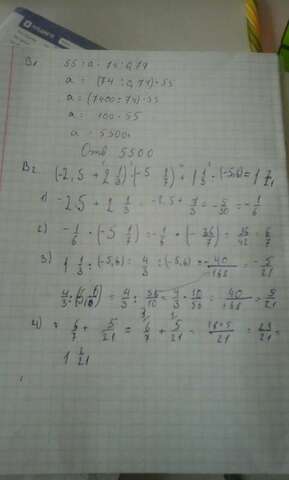 В1
55 : a = 74 : 0,74
a = (74 : 0,74) · 55
a = (7400 : 74) · 55
a = 100 · 55
a = 5500
Отв. 5500
В2
(-2,5 + 2 1/3) · (-5 1/7) + 1 1/3 : (-5,6) = 1 2/21
1) -2,5 + 2 1/3 = -2,5 + 7/3 = -5/30 = -1/6
2) -1/6 · (-5 1/7) = -1/6 · (-36/7) = 36/42 = 6/7
3) 1 1/3 : (-5,6) = 4/3 : (-5,6) = -40/168 = -5/21
4/3 : 56/10 = 4/3 · 10/56 = 40/168 = 5/21
4) 6/7 + 5/21 = 6/7 + 5/21 = 18+5/21 = 23/21 =
1 2/21